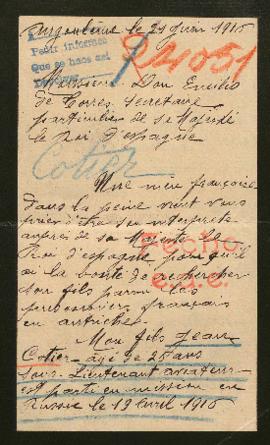 Angoulême le 21 Juin 1916
Pedir informes
Que se haga así
R 41051
Monsieur Don Emilio
de Torres Secrétaire
particulier de Sa Majesté
le Roi d'Espagne
Cotier
Une mère française
dans la peine vient vous
prier d'être son interprète
auprès de sa Majesté le
Roi d'Espagne pour qu'il
ai la bonté de rechercher
Fecho
son fils parmi les
prisonniers français
en autriche.
Mon fils Jean
Cotier agé de 25 ans
sous-Lieutenant aviateur
est parti en mission en
Russie le 19 Avril 1916